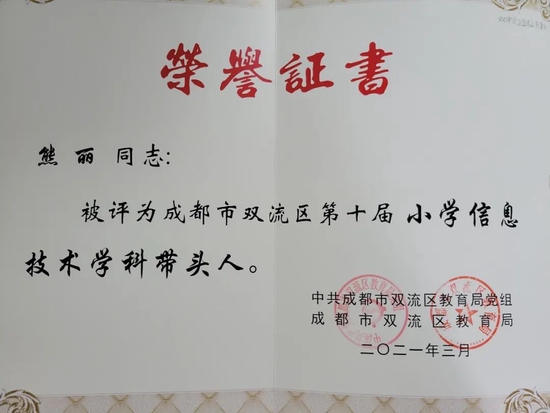 榮譽証書
熊丽 同志:
被评为成都市双流区第十届 小学信息
技术学科带头人。
中共成都市双流区教育局党组
成都市双流区教育局
二〇二一年三月